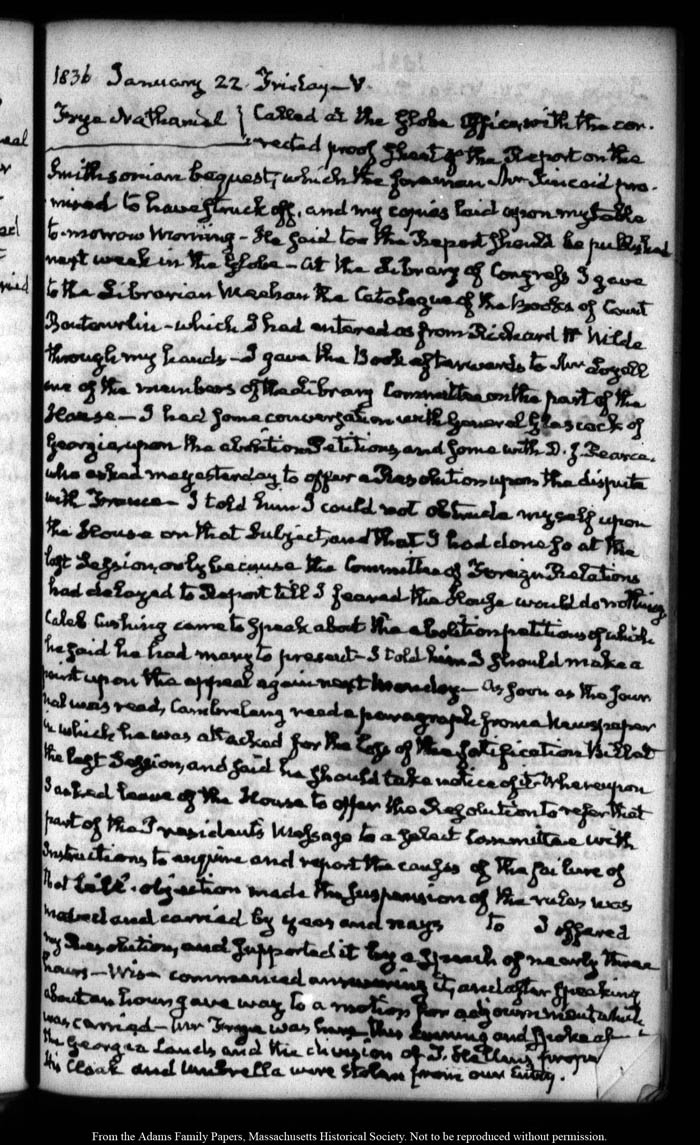 1836 January 22. Friday — V.
Frye Nathaniel } Called at the Globe Office, with the cor-
rected proof Sheet of the Report on the
Smithsonian bequest, which the foreman Mr Kincaid pro-
mised to have struck off, and my copies laid upon my table
to-morrow Morning — He said too the Report should be published
next week in the Globe — At the Library of Congress I gave
to the Librarian Meehan the Catalogue of the Books of Count
Boutourlin — which I had entered as from Richard H Wilde
through my hands — I gave the Book afterwards to Mr Loyall
one of the members of the Library Committee on the part of the
House — I had some conversation with General Glascock of
Georgia, upon the abolition Petitions, and some with D. J. Pearce,
who asked me yesterday to offer a Resolution upon the dispute
with France — I told him I could not obtrude myself upon
the House on that Subject, and that I had done so at the
last Session, only because the Committee of Foreign Relations
had delayed to Report till I feared the House would do nothing
Caleb Cushing came to speak about the abolition petitions of which
he said he had many to present — I told him I should make a
point upon the appeal again next Monday — As soon as the Jour
nal was read, Cambreleng read a paragraph from a Newspaper
in which he was attacked for the loss of the fortification Bill at
the last Session, and said he should take notice of it. Whereupon
I asked leave of the House to offer the Resolution to refer that
part of the President's Message to a select Committee with
Instructions to enquire and report the causes of the failure of
that bill. objection made the suspension of the rules was
moved and carried by yeas and nays to I offered
my Resolution, and supported it by a Speech of nearly three
hours — Wise commenced answering it, and after speaking
about an hour gave way to a motion for adjournment which
was carried — Mr Frye was here this Evening and spoke of
the Georgia Lands and the division of T. Hellen's
His Cloak and Umbrella were stolen from our Entry.
From the Adams Family Papers, Massachusetts Historical Society. Not to be reproduced without permission.